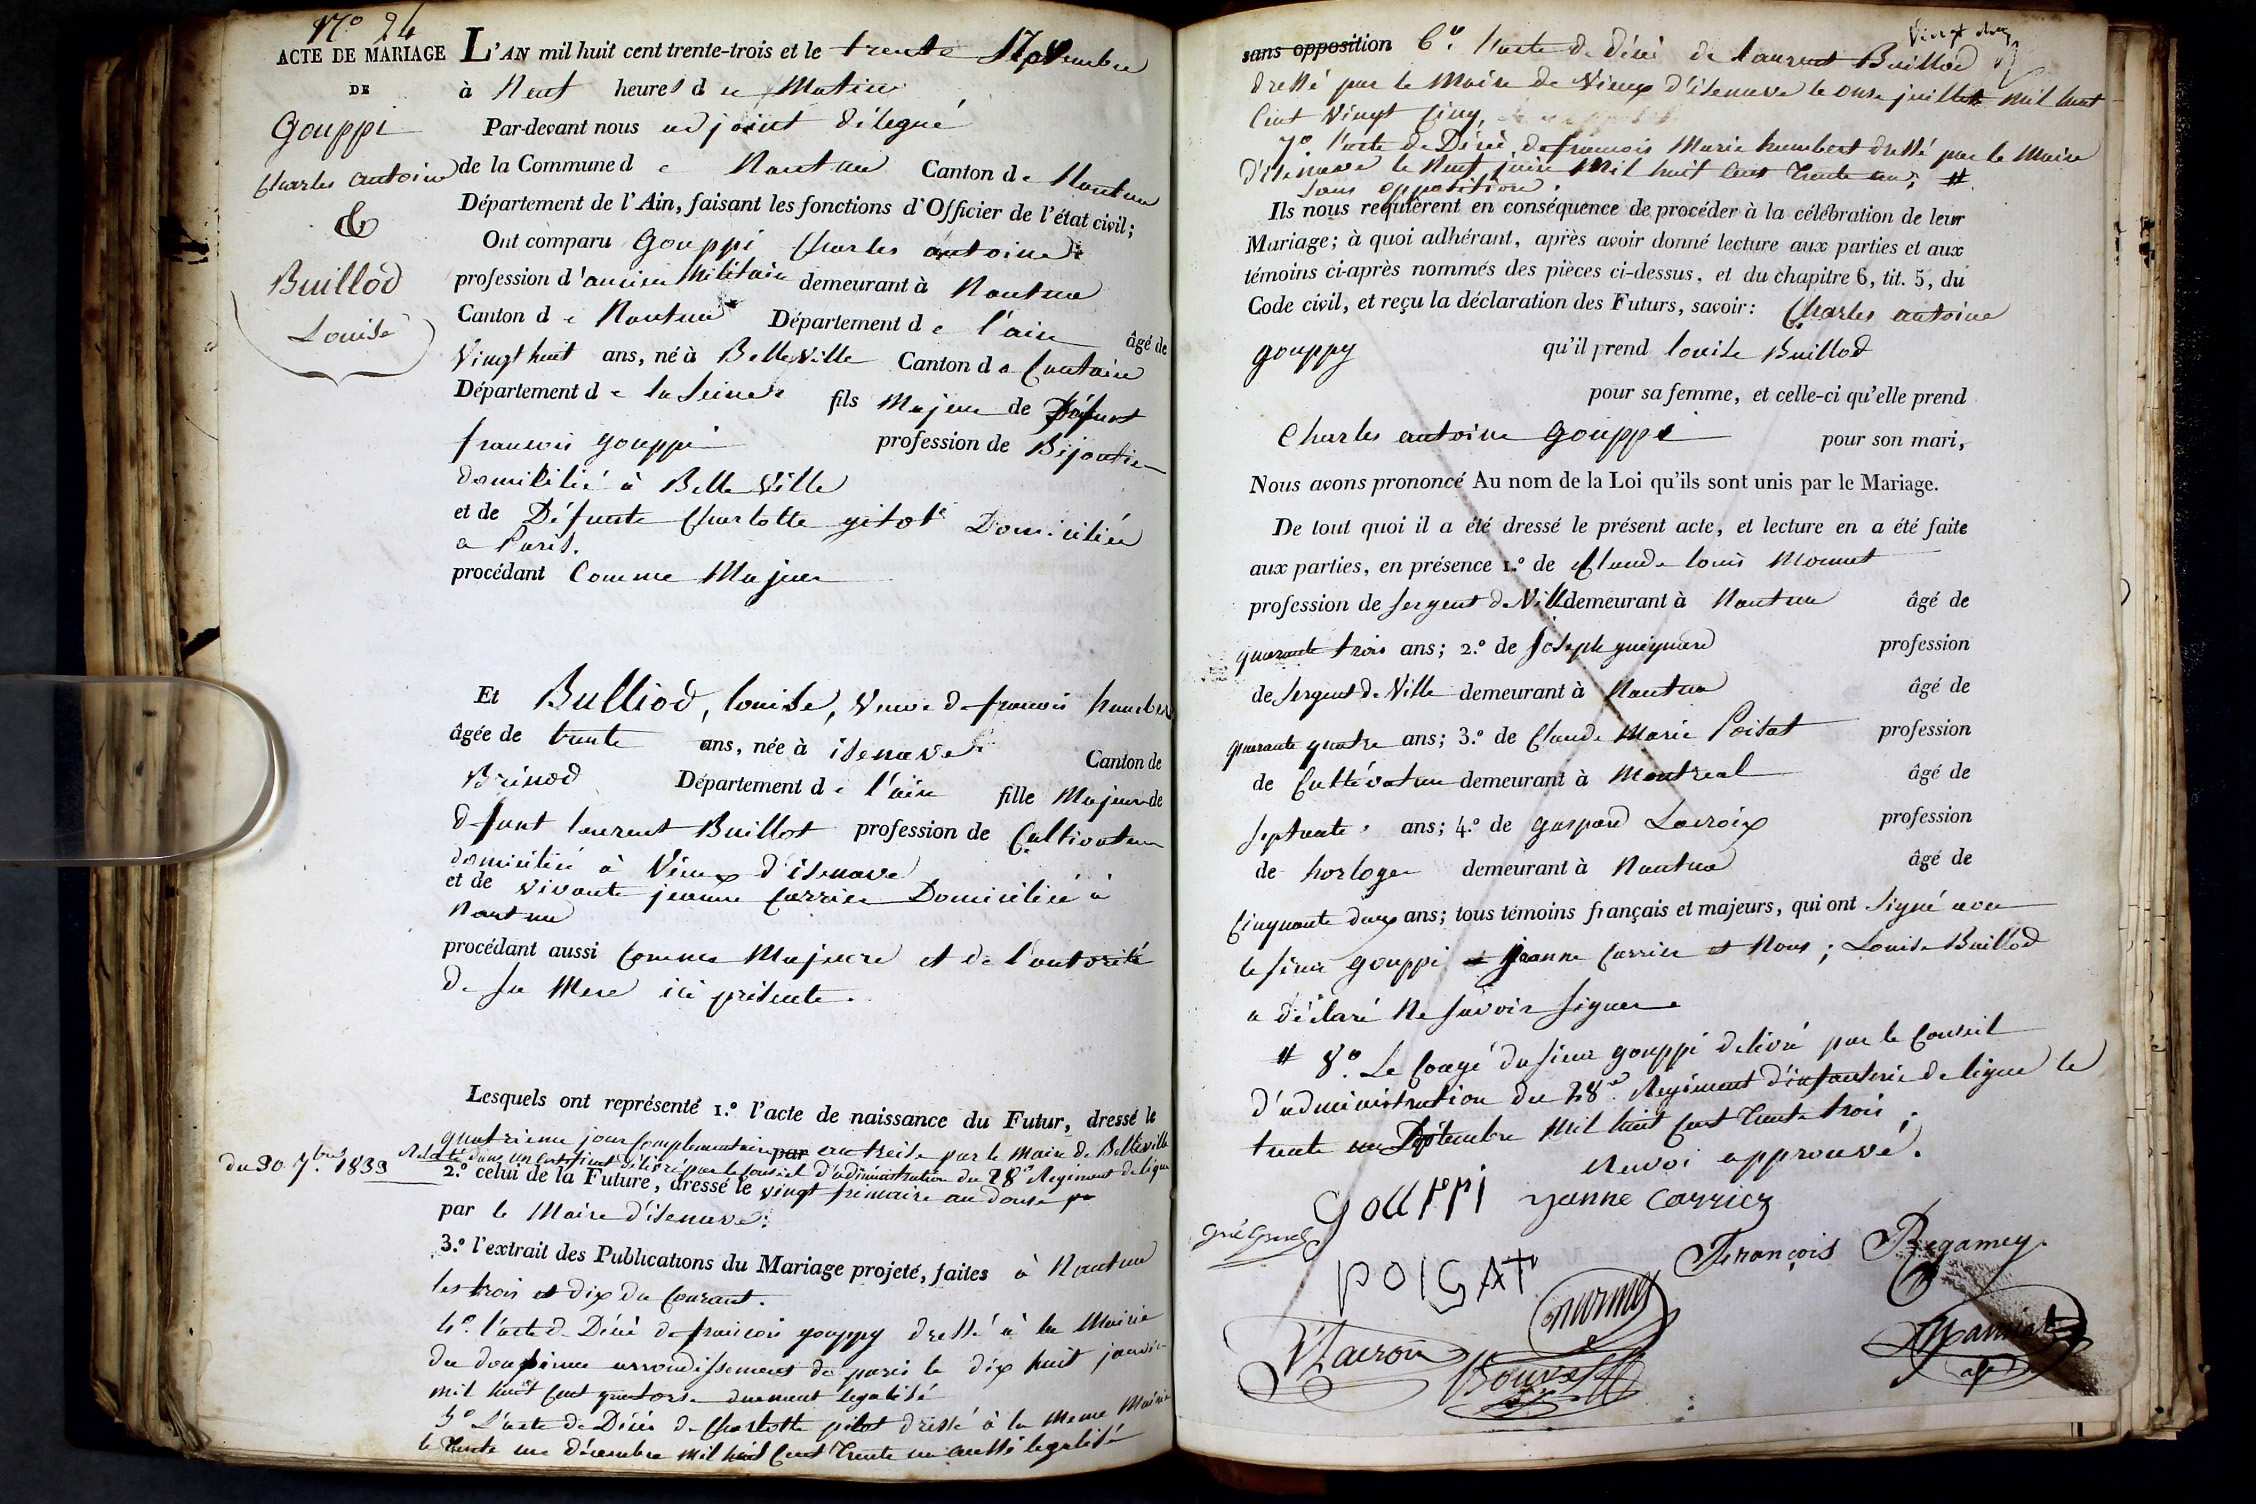 N.o 24
ACTE DE MARIAGE
DE
Gouppi
Charles antoine
&
Buillod
Louise
L'AN mil huit cent trente-trois et le trente Novembre
à Neuf heures du Matin
Par-devant nous adjoint délégué
de la Commune de Nantua Canton de Nantua
Département de l'Ain, faisant les fonctions d'Officier de l'état civil;
Ont comparu Gouppi Charles antoine
profession d'ancien Militaire demeurant à Nantua
Canton de Nantua Département de l'ain âgé de
Vingt huit ans, né à Belleville Canton de
Département de la Seine fils Majeur de Défunt
francois gouppi profession de Bijoutier
domicilié à Belle Ville
et de Défunte Charlotte Domiciliée
a Paris.
procédant Comme Majeur
Et Bulliod, louise, Veuve de francois humbert
âgée de trente ans, née à isenave Canton de
Brénod Département de l'ain fille Majeure de
défunt laurent Buillot profession de Cultivateur
domicilié à Vieux d'isenave
et de vivante jeanne Carrier Domiciliée à
Nantua
procédant aussi Comme Majeure et de l'autorité
de sa Mere ici présente.
Lesquels ont représenté 1.º l'acte de naissance du Futur, dressé le
quatrieme jour Complementaire par an treize par le Maire de Belleville
Relaté dans un Certificat délivré par le Conseil d'administration du 28e Regiment de ligne
du 30 7.bre 1833
2.º celui de la Future, dressé le vingt frimaire an douze
par le Maire d'isenave.
3.º l'extrait des Publications du Mariage projeté, faites à Nantua
les trois et dix du Courant.
4.º l'acte de Décès de francois gouppy dressé à la Mairie
du douzieme arrondissement de paris le dix huit janvier
mil huit Cent quatorze duement legalisé
5.º L'acte de Décès de Charlotte dressé à la Meme Mairie
le trente un décembre mil huit Cent trente un aussi legalisé
sans opposition 6.º l'acte de décès de laurent Buillod
dressé par le Maire de Vieux d'isenave le onze juillet mil huit
Cent Vingt Cinq,
7.º l'acte de Décès de francois Marie humbert dressé par le Maire
d'isenave le Neuf juin Mil huit Cent trente un; #
Sans opposition.
Ils nous requièrent en conséquence de procéder à la célébration de leur
Mariage; à quoi adhérant, après avoir donné lecture aux parties et aux
témoins ci-après nommés des pièces ci-dessus, et du chapitre 6, tit. 5, du
Code civil, et reçu la déclaration des Futurs, savoir: Charles antoine
gouppy qu'il prend louise Buillod
pour sa femme, et celle-ci qu'elle prend
Charles antoine Gouppi pour son mari,
Nous avons prononcé Au nom de la Loi qu'ils sont unis par le Mariage.
De tout quoi il a été dressé le présent acte, et lecture en a été faite
aux parties, en présence 1.º de Claude louis
profession de Sergent de Ville demeurant à Nantua âgé de
quarante trois ans; 2.º de Joseph profession
de Sergent de Ville demeurant à Nantua âgé de
quarante quatre ans; 3.º de Claude Marie Poisat profession
de Cultivateur demeurant à Montreal âgé de
Septante ans; 4.º de gaspard Lacroix profession
de horloger demeurant à Nantua âgé de
Cinquante deux ans; tous témoins français et majeurs, qui ont Signé avec
le sieur gouppi et jeanne Carrier et Nous; Louise Buillod
a déclaré Ne savoir signer
# 8.º Le Congé du sieur gouppi delivré par le Conseil
d'administration du 28e Regiment d'infanterie de ligne le
trente Septembre Mil huit Cent trente trois.
Renvoi approuvé.
Gouppi yanne Carriez
François Regamey
POISAT
Lacroix